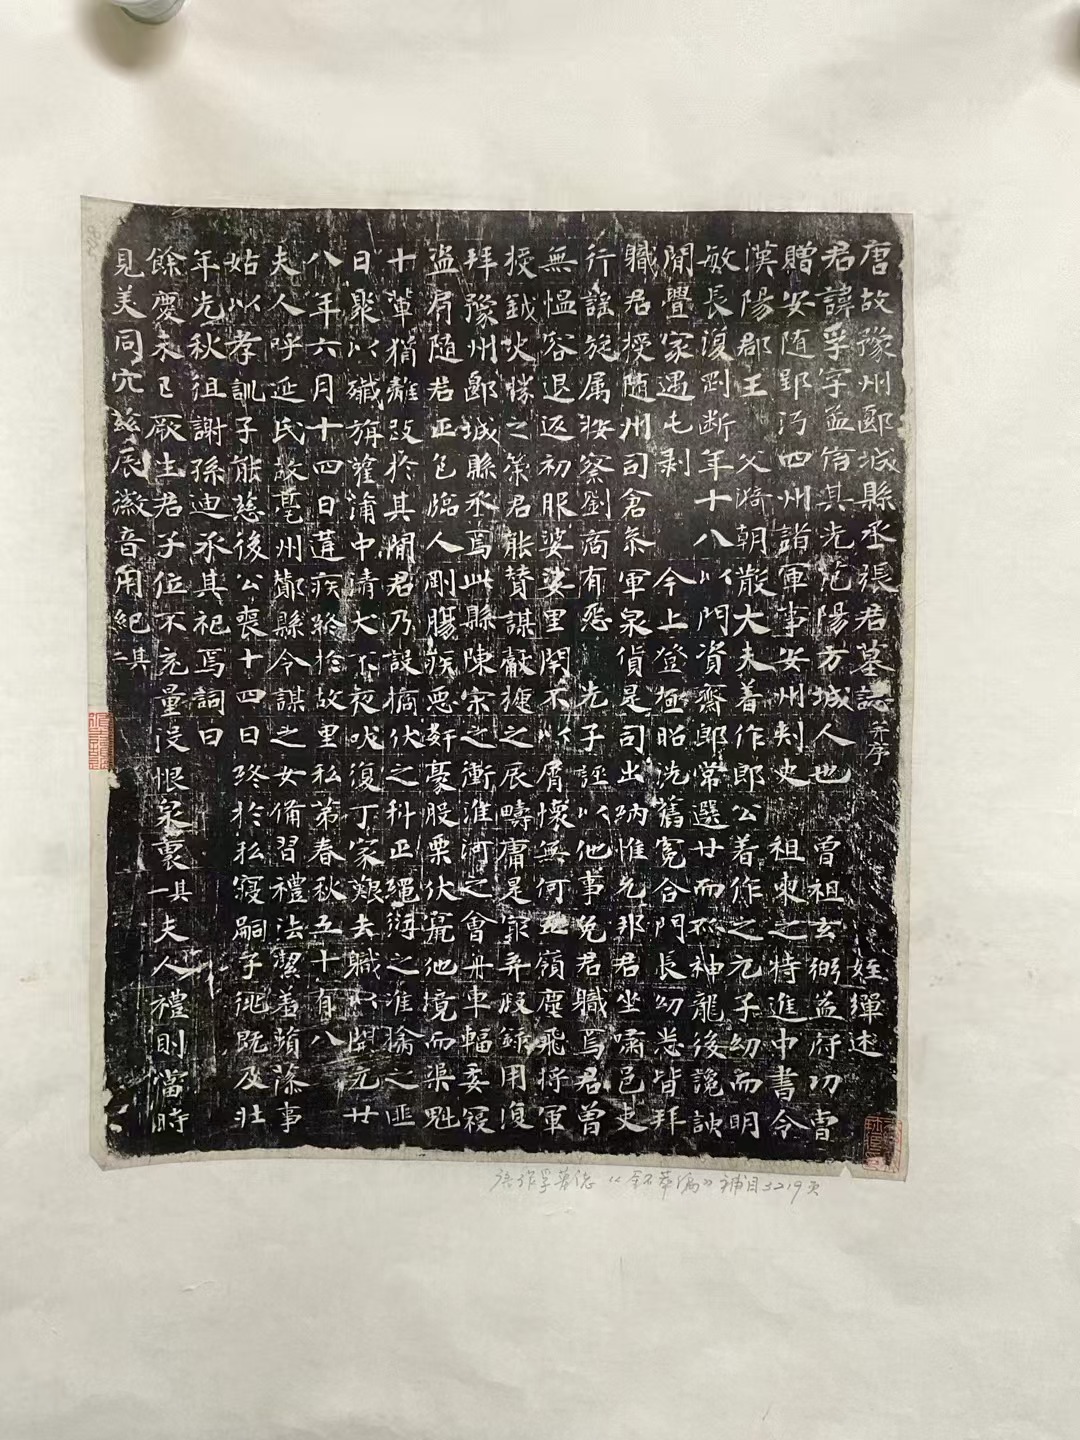 唐故豫州郾城縣丞張君墓誌并序 姪繟述
君諱孚字孟信其先范陽方城人也 曾祖玄弼益府功曹
贈安随郢沔四州諸軍事安州刺史 祖柬之特進中書令
漢陽郡王 父漪朝散大夫著作郎公著作之元子幼而明
敏長復剛断年十八以門資齋郎常選廿而孤神龍後讒諛
間舋家遇屯剥 今上登極昭洗舊冤合門長幼悉皆拜
職君授随州司倉叅軍泉貨是司出納惟允邦君坐嘯邑吏
行謡旋属按察劉商有惡 先子誣以他事免君職焉君曾
無愠容退返初服婆娑里閈不以屑懷無何五嶺塵飛將軍
授鉞火勝之策君能賛謀獻捷之辰疇庸是寂弃瑕録用復
拜豫州郾城縣丞焉此縣陳宋之衝淮河之會舟車輻委寇
盗肩随君正色臨人剛腸疾惡奸豪股栗伏竄他境而渠魁
十輩猶難改於其間君乃設擒伏之科正繩愆之准擒之匪
日聚以殲旃萑蒲中清犬不夜吠復丁家艱去職以開元廿
八年六月十四日遘疾終於故里私第春秋五十有八
夫人呼延氏故亳州酇縣令謀之女備習禮法潔羞蘋藻事
姑以孝訓子能慈後公喪十四日終於私寝嗣子 既及壯
年先秋徂謝孫迪承其祀焉詞曰
餘慶未已厥生君子位不充量没恨泉裏其一夫人禮則當時
見美同穴兹辰徽音用紀其二
唐張孚墓志《金石萃编》補目3219页